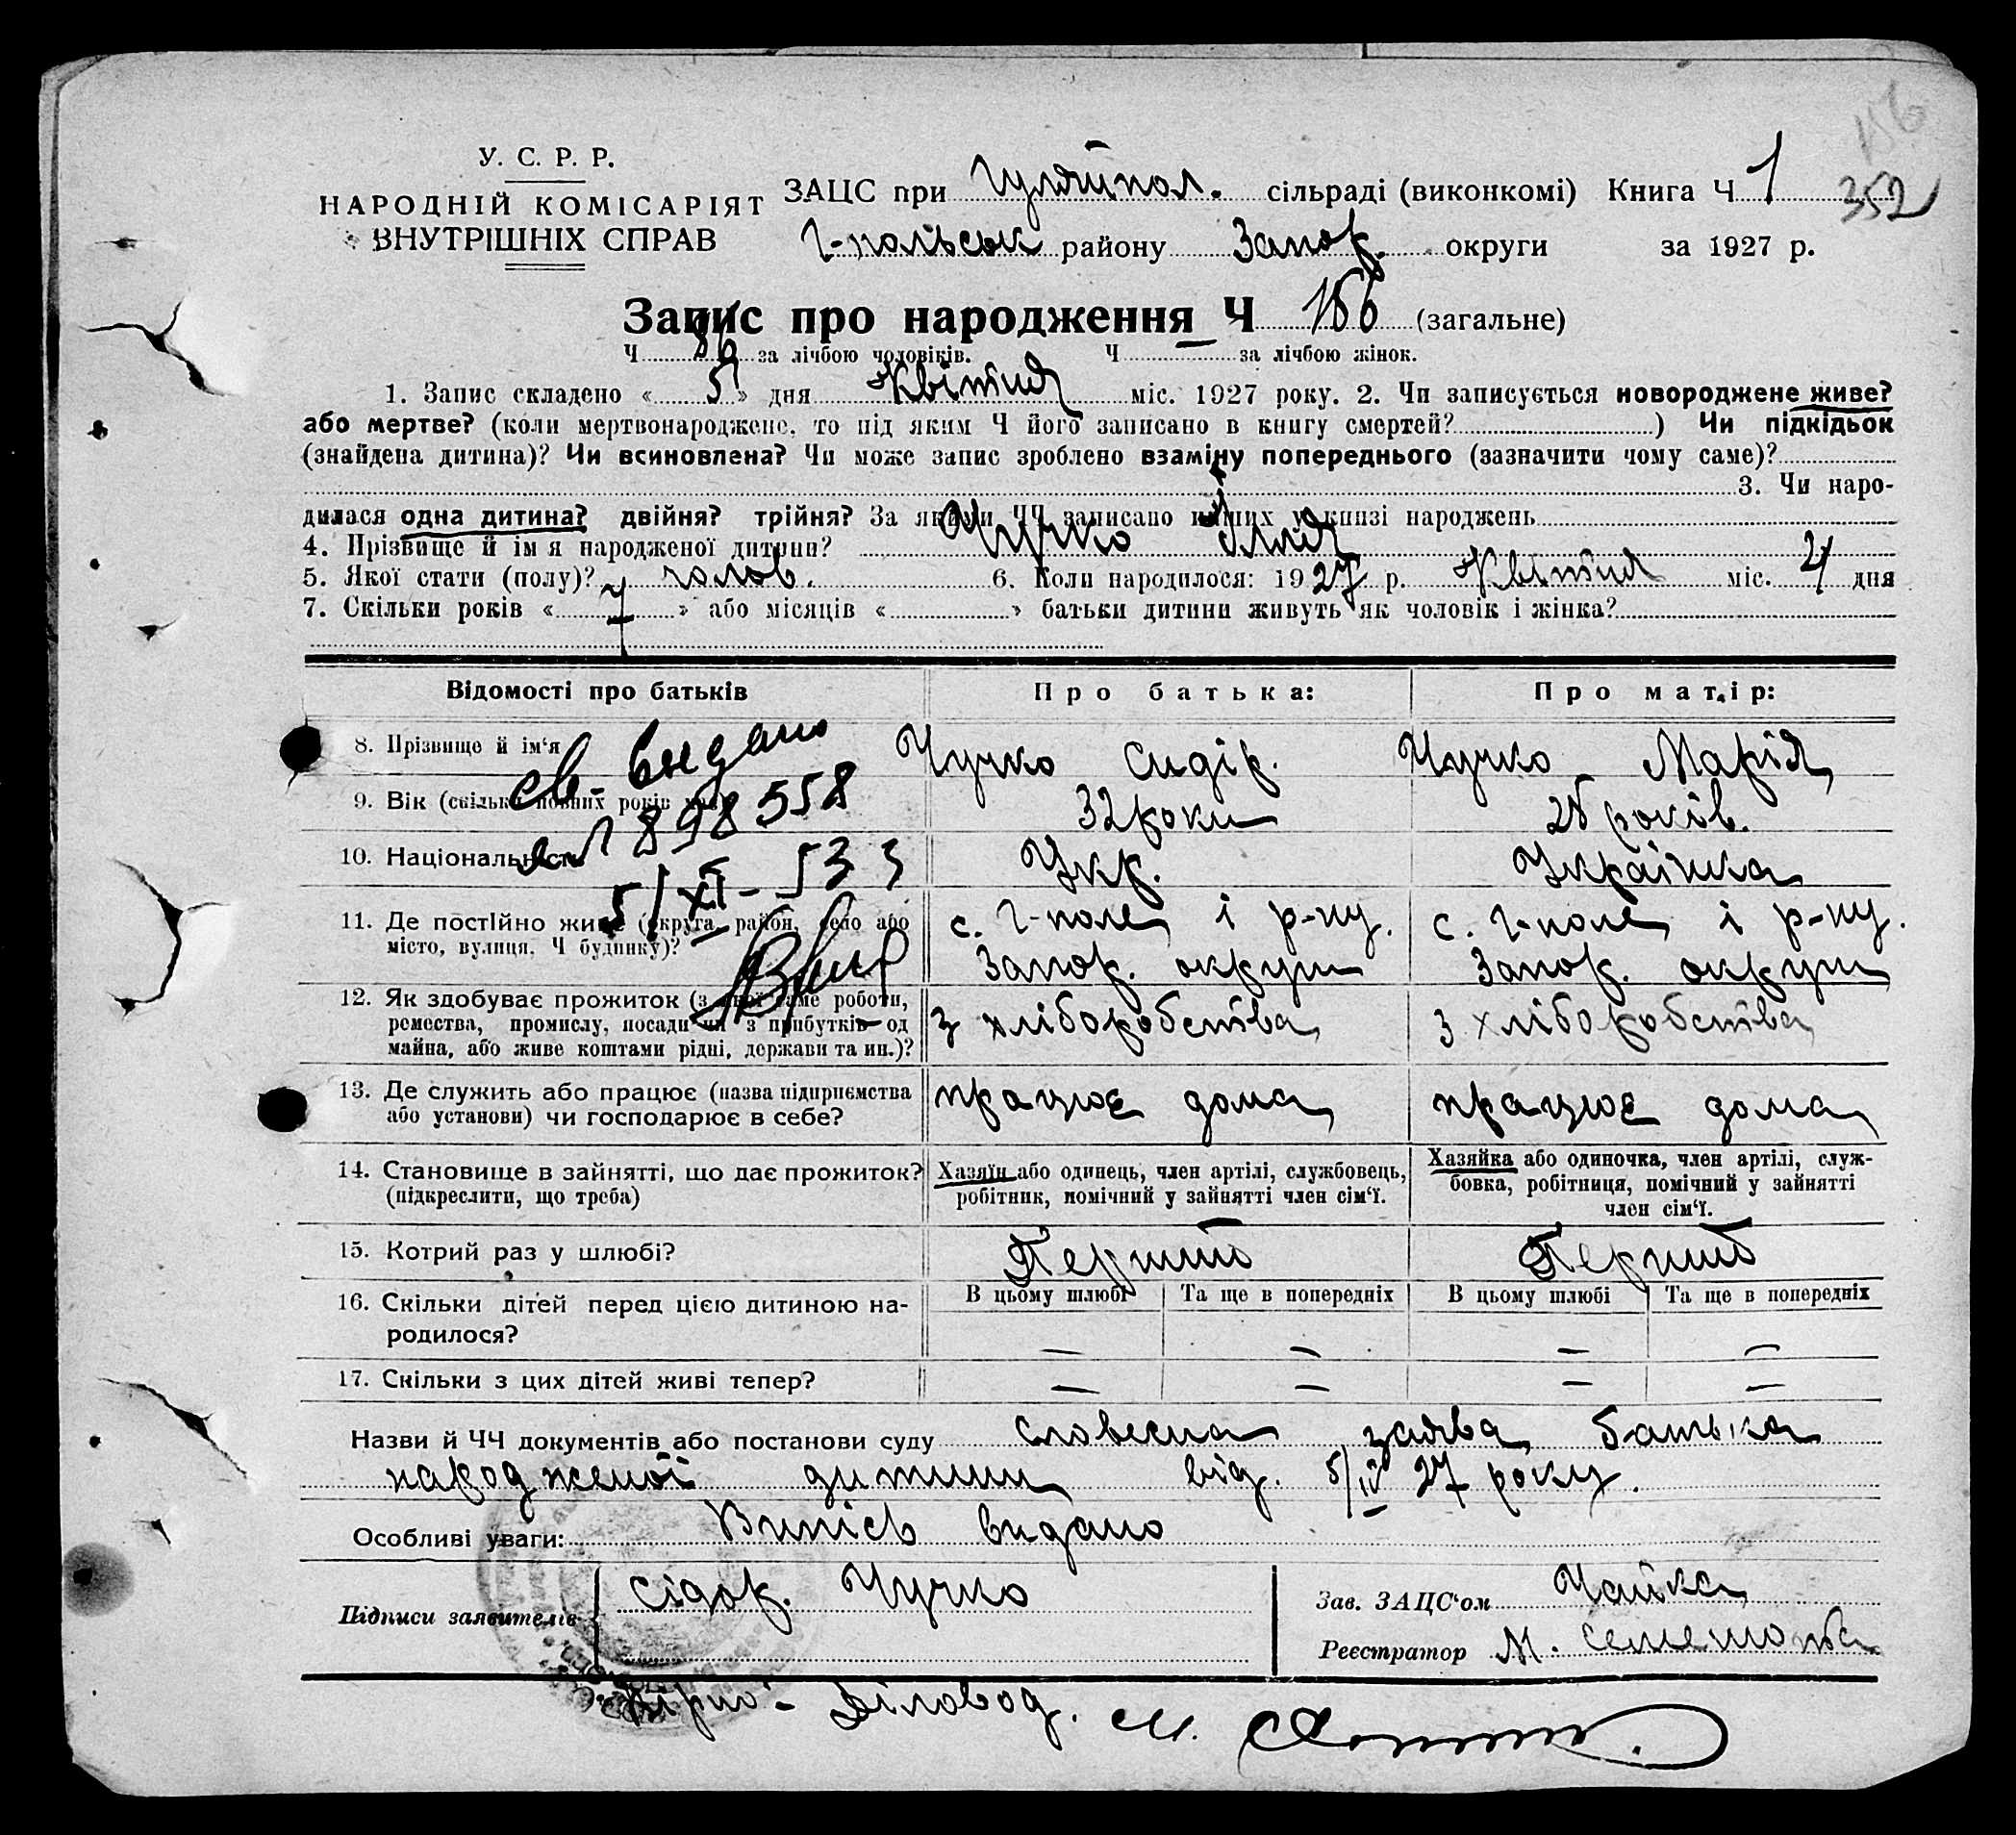 156
У. С. Р. Р.
НАРОДНІЙ КОМІСАРІЯТ
ВНУТРІШНІХ СПРАВ
ЗАЦС при Гуляйпол. сільраді (виконкомі) Книга Ч 1
352
Г-польськ району Запор. округи за 1927 р.
Запис про народження Ч 156 (загальне)
Ч за лічбою чоловіків. Ч — за лічбою жінок.
1. Запис складено « 5 » дня Квітня міс. 1927 року. 2. Чи записується новороджене живе?
або мертве? (коли мертвонароджене, то під яким Ч його записано в книгу смертей? ) Чи підкідьок
(знайдена дитина)? Чи всиновлена? Чи може запис зроблено взаміну попереднього (зазначити чому саме)?
3. Чи наро-
дилася одна дитина? двійня? трійня? За якими ЧЧ записано инших у книзі народжень
4. Прізвище й ім'я народженої дитини? Чучко Ілля
5. Якої стати (полу)? чолов. 6. Коли народилося: 1927 р. Квітня міс. 4 дня
7. Скільки років « 7 » або місяців « » батьки дитини живуть як чоловік і жінка?
Відомості про батьків Про батька: Про матір:
8. Прізвище й ім'я Чучко Сидір. Чучко Марія
св. видано
9. Вік (скільки повних років має) 32 роки 25 років.
898558
10. Національність Укр. Українка
5/XII-53
11. Де постійно живе (округа, район, село або місто, вулиця, Ч будинку)? с. Г-поле і р-ну. Запор. округи с. Г-поле і р-ну. Запор. округи
12. Як здобуває прожиток (з якої саме роботи, ремества, промислу, посади чи з прибутків од майна, або живе коштами рідні, держави та ин.)? З хліборобства З хліборобства
13. Де служить або працює (назва підприємства або установи) чи господарює в себе? працює дома працює дома
14. Становище в зайнятті, що дає прожиток? (підкреслити, що треба) Хазяїн або одинець, член артілі, службовець, робітник, помічний у зайнятті член сім'ї. Хазяйка або одиночка, член артілі, служ-бовка, робітниця, помічний у зайнятті член сім'ї.
15. Котрий раз у шлюбі? Перший Перший
16. Скільки дітей перед цією дитиною на-родилося? В цьому шлюбі — Та ще в попередніх — В цьому шлюбі — Та ще в попередніх —
17. Скільки з цих дітей живі тепер? — — — —
Назви й ЧЧ документів або постанови суду словесна заява батька
народженої дитини від. 5/IV 27 року.
Особливі уваги: Випісь видано
Підписи заявителів Сідор. Чучко
Зав. ЗАЦС'ом Чайка
Реєстратор М.
Вірно: Діловод.